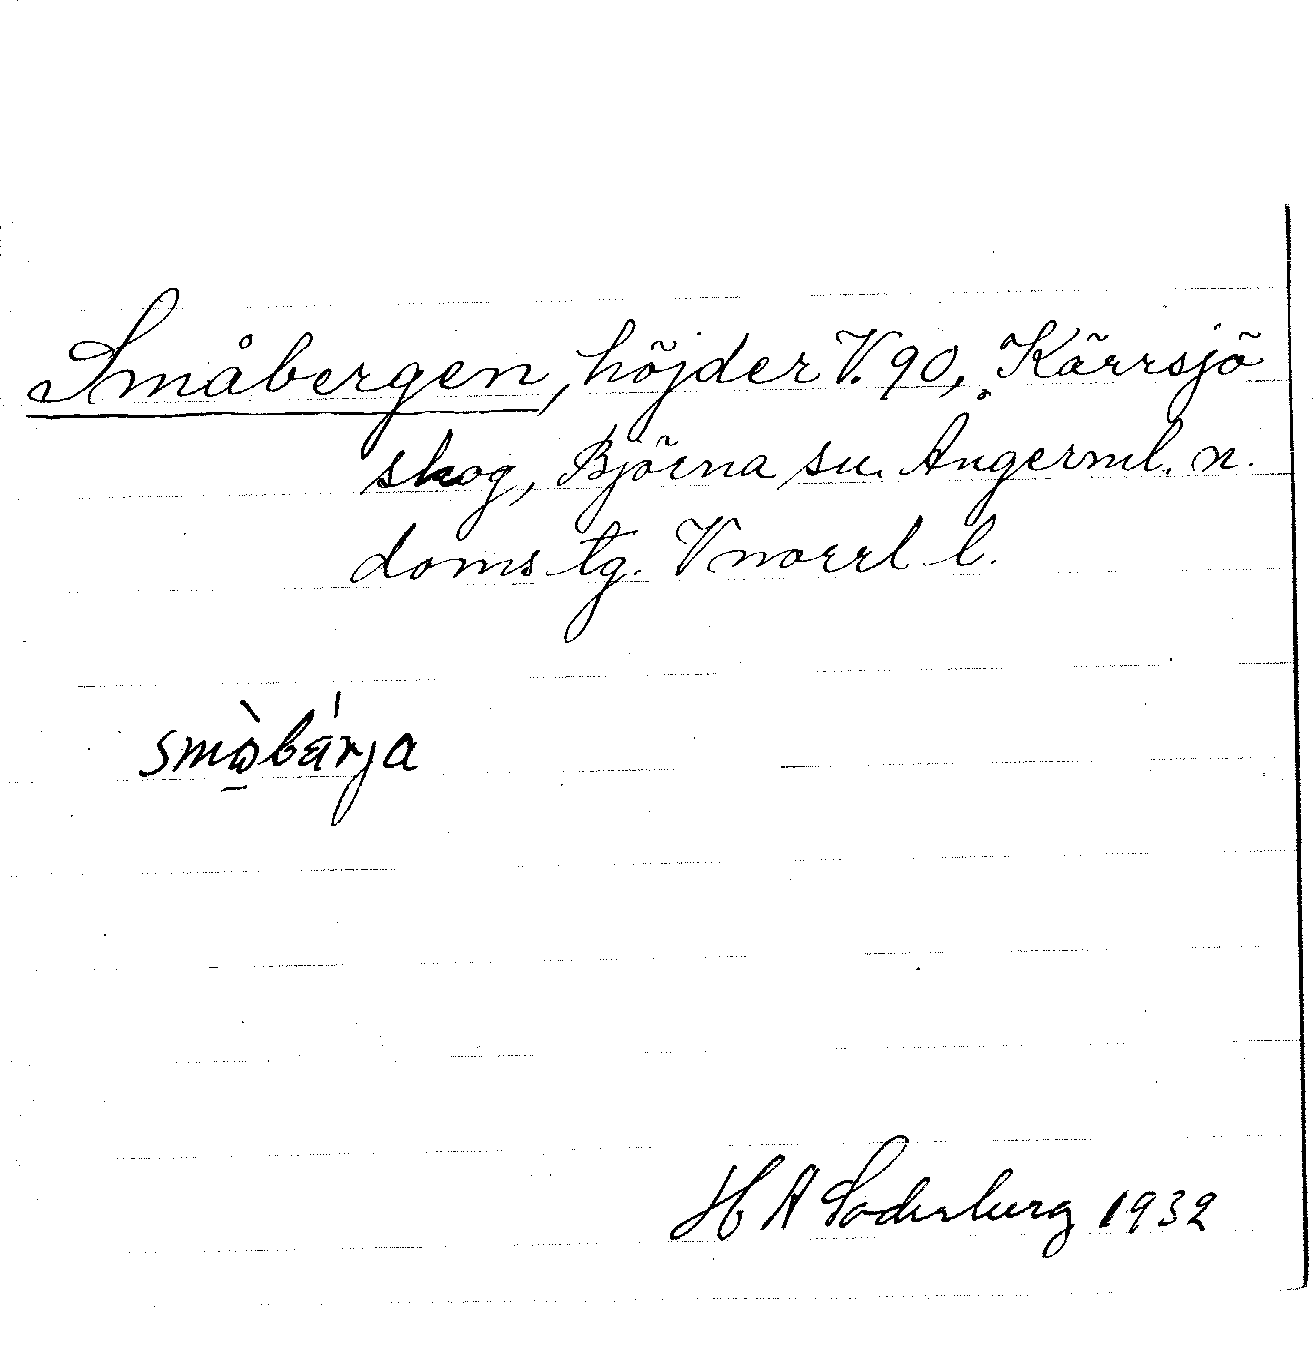 Småbergen, höjder V. 90, Kärrsjö
skog, Björna sn. Ångerml. n.
doms tg. Vnorrl l.
småbärja
H A Söderberg 1932